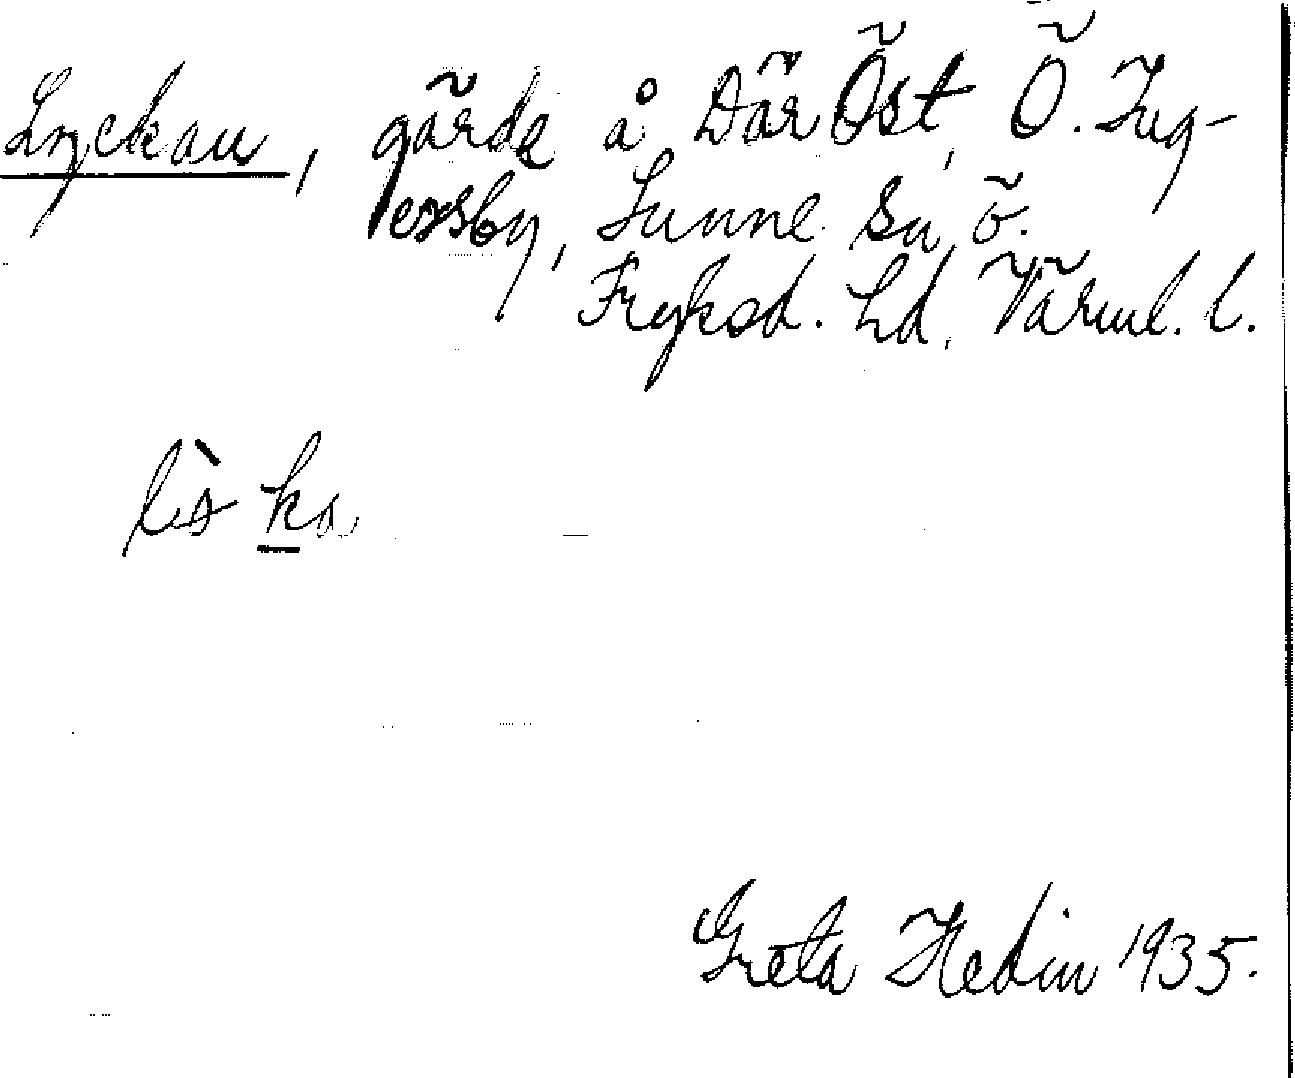 Lyckan, gärde å Där Öst, Ö. Ing-
ersby, Sunne sn, ö.
Fryksd. hd, Värml. l.
Greta Hedin 1935.